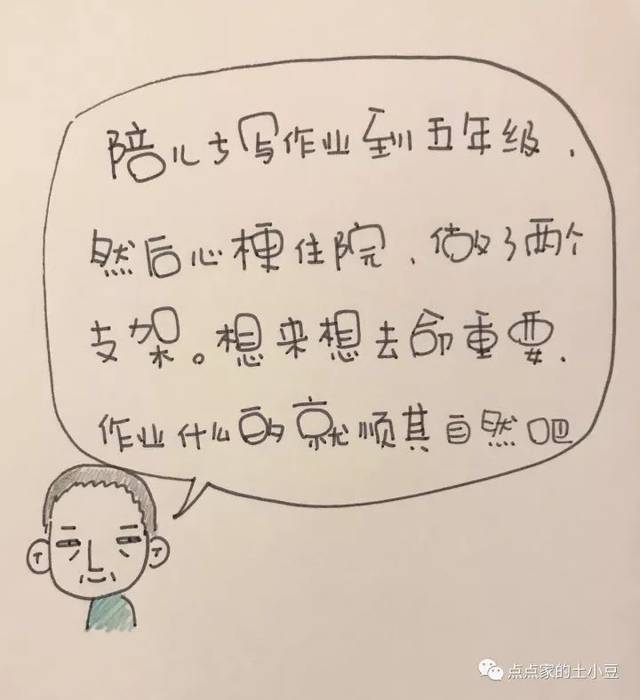 陪儿子写作业到五年级，
然后心梗住院，做了两个
支架。想来想去命重要，
作业什么的就顺其自然吧
点点家的土小豆